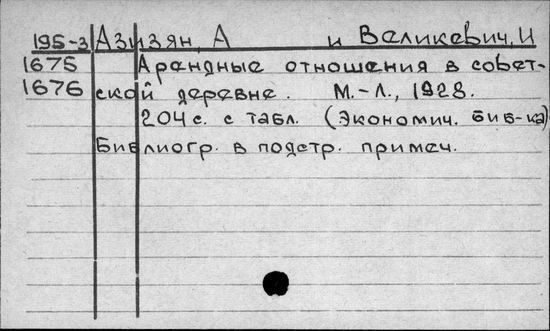 195-3 Азизян, А и Великевич, И
1675 Арендные отношения в совет-
1676 ской деревне. М.-Л., 1928.
204 с. с табл. (Экономич. биб-ка)
Библиогр. в подстр. примеч.